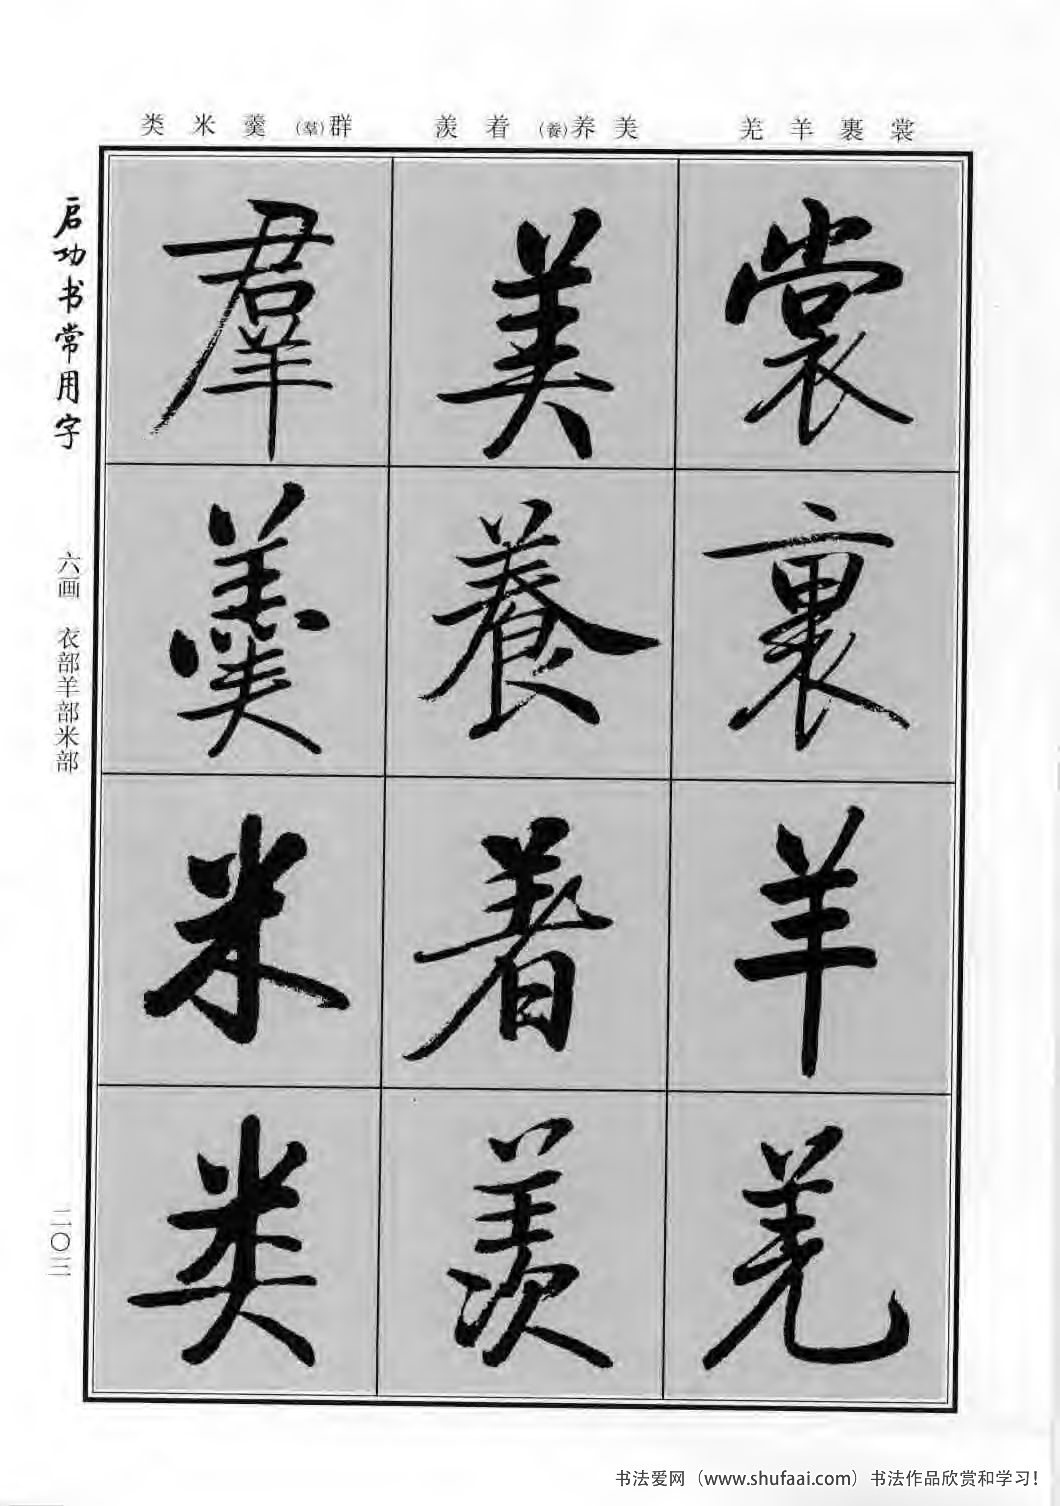 裳裹羊羌 美养(養)着羡 群(羣)羹米类
裳
裹
羊
羌
美
養
着
羡
羣
羹
米
类
启功书常用字
六画 衣部羊部米部
书法爱网（www.shufaai.com）书法作品欣赏和学习！